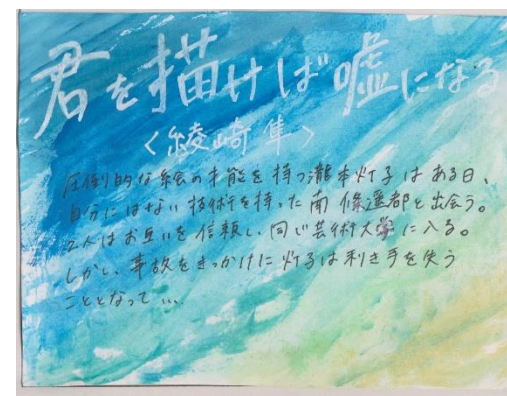 君を描けば嘘になる
〈綾崎隼〉
圧倒的な絵の才能を持つ瀧本灯子はある日、
自分にはない技術を持った南條遥都と出会う。
2人はお互いを信頼し、同じ芸術大学に入る。
しかし、事故をきっかけに灯子は利き手を失う
こととなって…